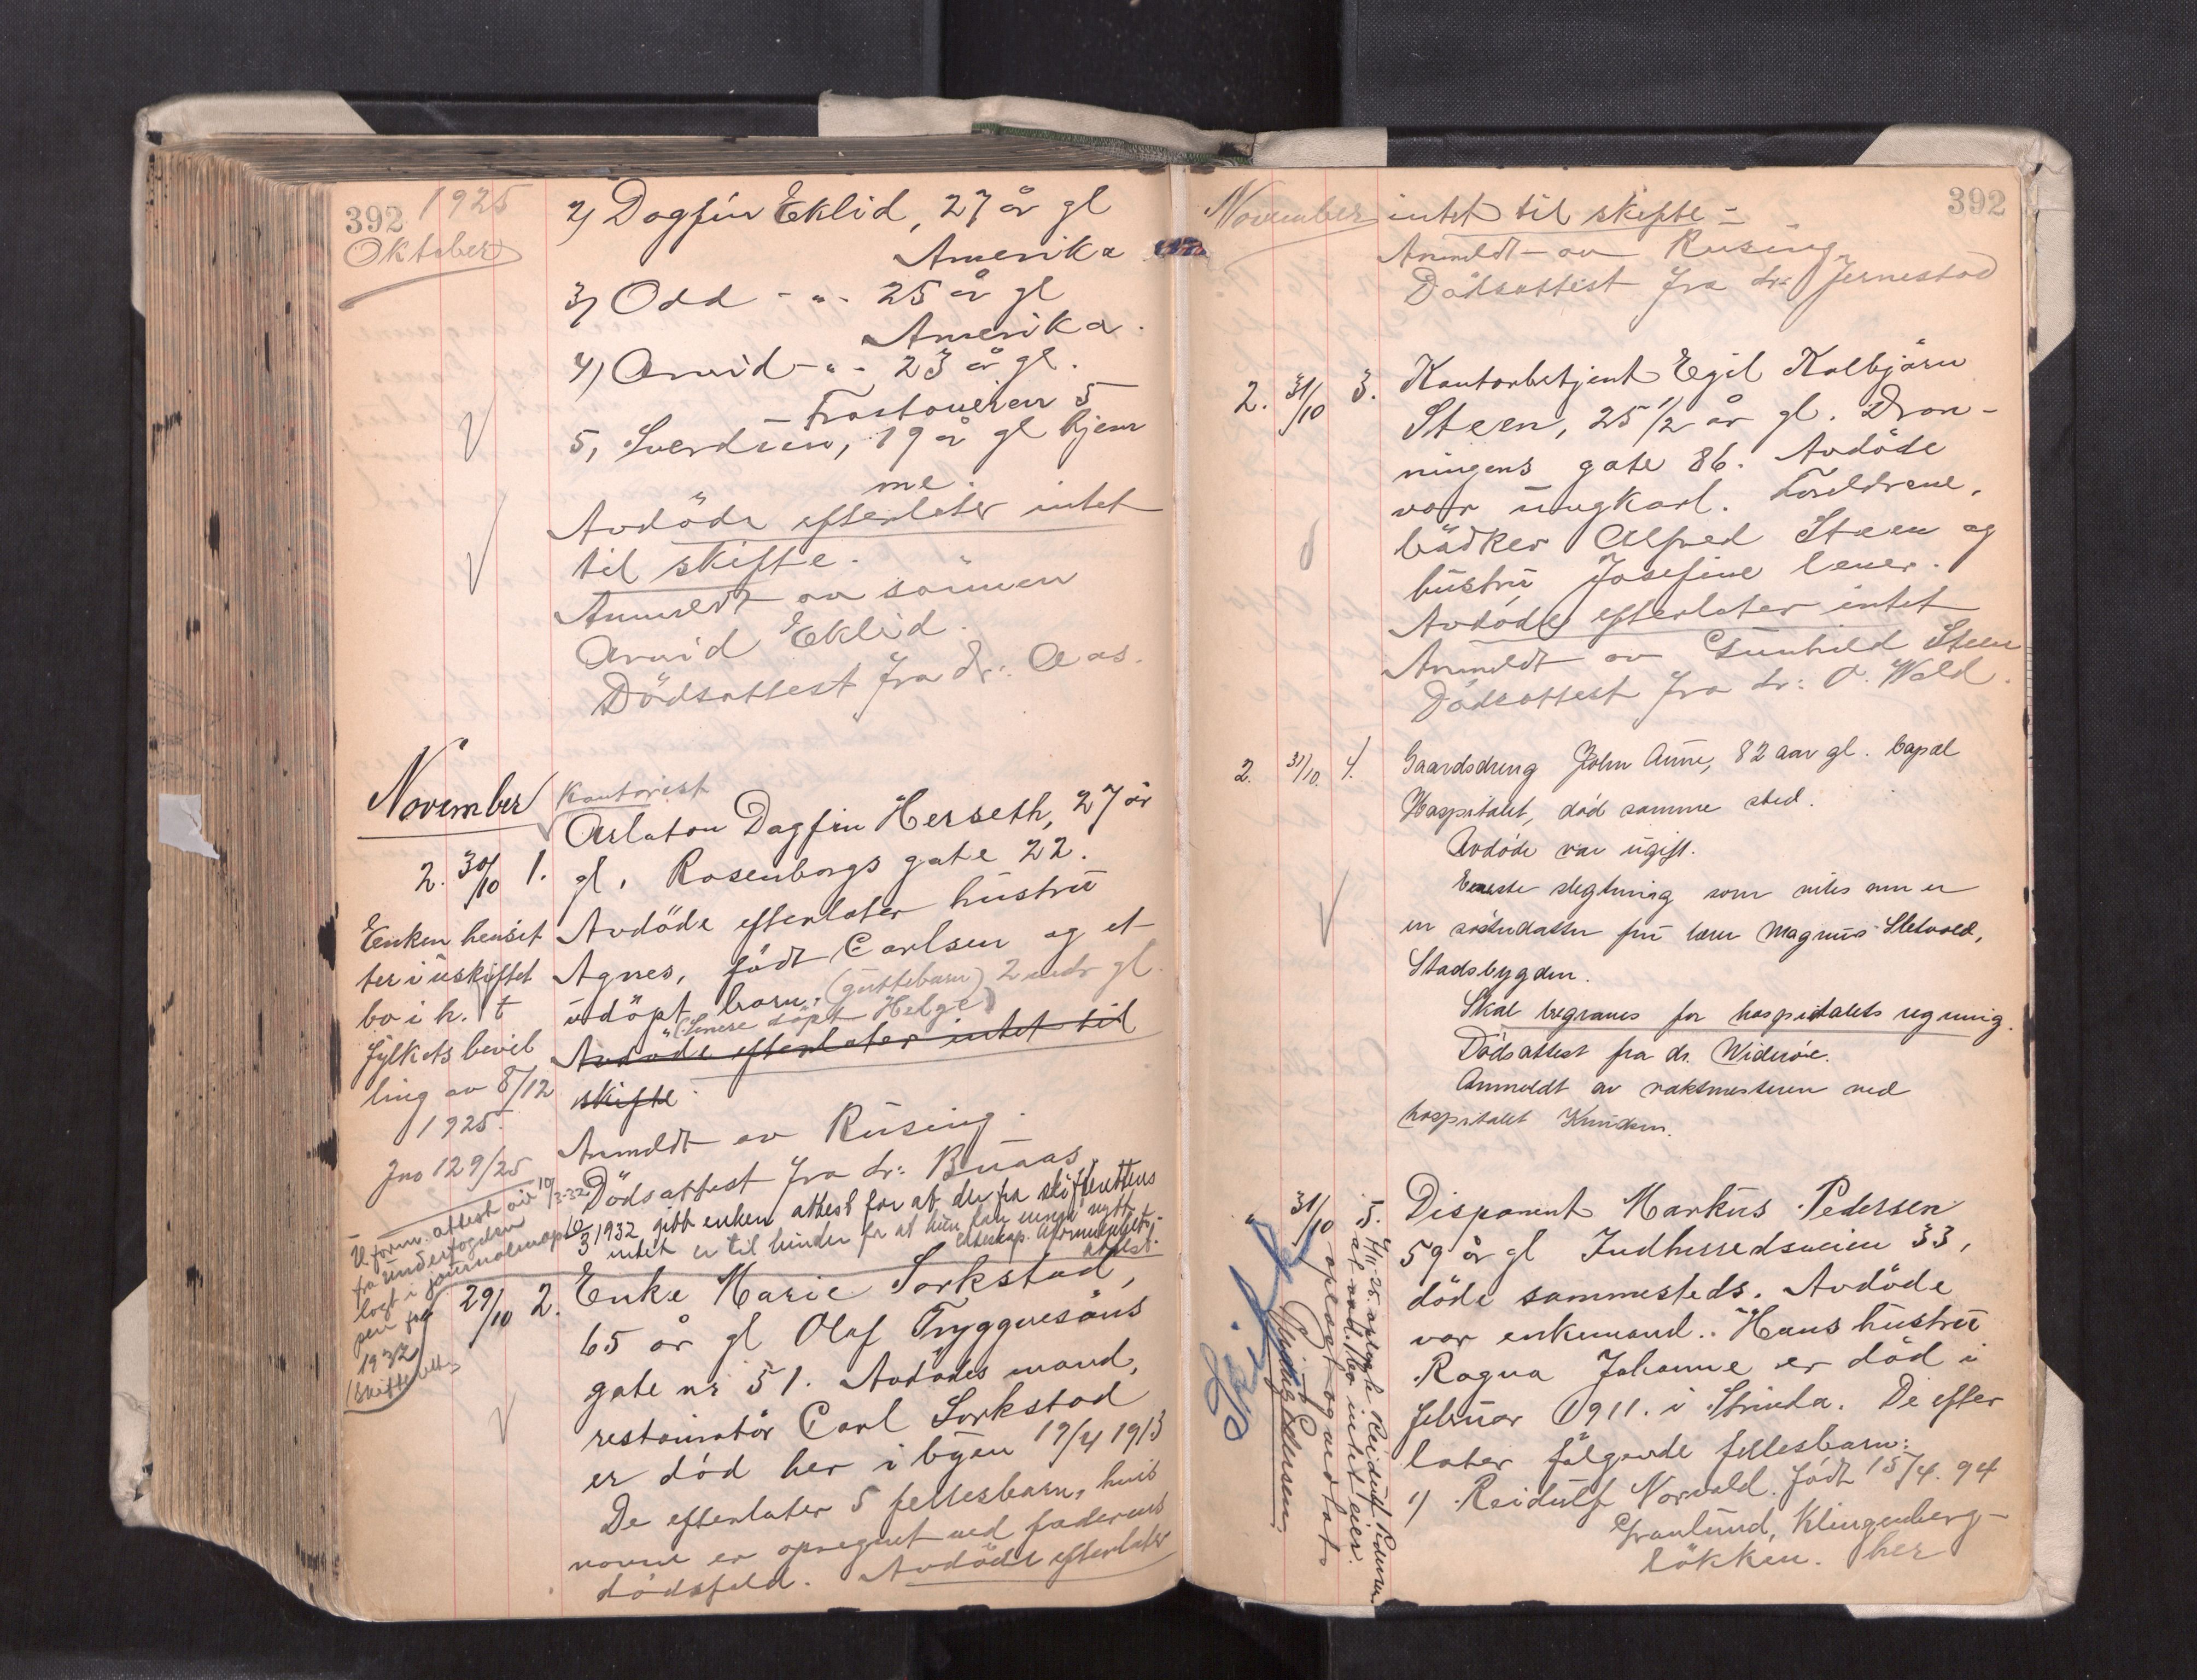 392
1925
Oktober
2) Dagfin Eklid, 27 år gl
Amerika
3) Odd - " - 25 år gl
Amerika.
4) Arvid - " - 23 år gl.
Frostaveien 5
5, Sverdrün, 19 år gl hjem
me.
Avdöde efterlater intet
til skifte.
Anmeldt av sönnen
Arvid Eklid.
Dödsattest fra dr: Aas.
November
Kontorist
2. 30/10 1.
Arlaton Dagfin Herseth, 27 år
gl, Rosenborgs gate 22.
Avdöde efterlater hüstrü
Agnes, födt Carlsen og et
üdöpt barn, (güttebarn) 2 mdr gl.
(Senere döpt Helge)
Avdöde efterlater intet til
skifte.
Anmeldt av Rüsing.
Dödsattest fra dr: Büaas.
Enken hensit
ter i üskiftet
bo i h. t
fylkets bevil
ling av 8/12
1925.
Jno 129/25
10/3 1932 gitt enken attest for at der fra skifterettens
intet er til hinder for at hün kan inngå nytt
ekteskap.
U. form. attest av 10/3-32
fra ünderfogden
lagt i journalmap
pen for
1932
29/10 2.
Enke Marie Sorkstad,
65 år gl Olaf Tryggvesöns
gate nr 51. Avdödes mand,
restauratör Carl Sorkstad
er död her i byen 19/4 1913
De efterlater 5 fellesbarn, hvis
navne er opregnet ved faderens
dödsfeld. Avdöde efterlater
392
November
intet til skifte -
Anmeldt av Rüsing
Dödsattest fra dr: Jernestad
2. 31/10 3.
Kontorbetjent Egil Kolbjörn
Steen, 25 1/2 år gl. Dron-
ningens gate 86. Avdöde
var üngkarl. Foreldrene,
bödker Alfred Steen og
hüstrü Josefine lever.
Avdöde efterlater intet
Anmeldt av Günhild Steen
Dödsattest fra dr: O. Wold.
2. 31/10. 4.
Gaardsdreng John Aüne, 82 aar gl.
Hospitalet, död samme sted.
Avdöde var ügift.
Eneste slegtning som vites om er
en söstüdatter frü lærer Magnüs Sletvold,
Stadsbygden.
Skal begraves for hospitalets regning.
Dödsattest fra dr. Wideröe.
Anmeldt av vaktmesteren ved
hospitalet Knüdsen.
31/10 5.
Disponent Marküs Pedersen
59 år gl Indherredsveien 33,
döde sammesteds. Avdöde
var enkemand. Hans hüstrü
Ragna Johanne er död i
febrüar 1911. i Strinda. De efter
later fölgende fellesbarn:
1) Reidülf Norvald. födt 15/4. 94
Granlünd, Klingenberg-
lökken. her
4/11-25 oplæste Reidulf Pedersen
at avd. bo intet eier.
oplæst og vedtatt
Reidulf Pedersen